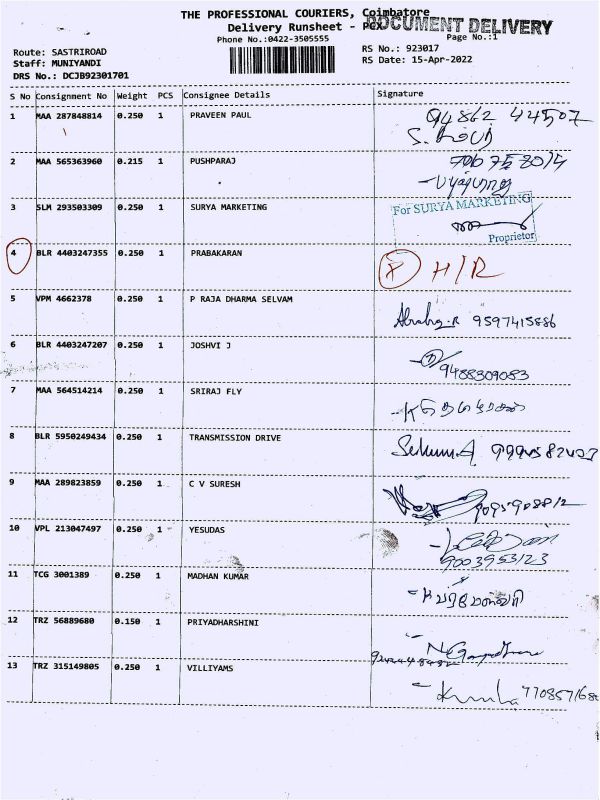 THE PROFESSIONAL COURIERS, Coimbatore
Delivery Runsheet - PCX
DOCUMENT DELIVERY
Phone No.:0422-3505555
Page No.:1
Route: SASTRIROAD
RS No.: 923017
Staff: MUNIYANDI
RS Date: 15-Apr-2022
DRS No.: DCJB92301701
S No Consignment No Weight PCS Consignee Details Signature
1 MAA 287848814 0.250 1 PRAVEEN PAUL 94862 44507
2 MAA 565363960 0.215 1 PUSHPARAJ
3 SLM 293503309 0.250 1 SURYA MARKETING For SURYA MARKETING
Proprietor
4 BLR 4403247355 0.250 1 PRABAKARAN H/R
5 VPM 4662378 0.250 1 P RAJA DHARMA SELVAM 9597415886
6 BLR 4403247207 0.250 1 JOSHVI J
9488309083
7 MAA 564514214 0.250 1 SRIRAJ FLY
8 BLR 5950249434 0.250 1 TRANSMISSION DRIVE
9 MAA 289823859 0.250 1 C V SURESH
10 VPL 213047497 0.250 1 YESUDAS
9003953123
11 TCG 3001389 0.250 1 MADHAN KUMAR
12 TRZ 56889680 0.150 1 PRIYADHARSHINI
13 TRZ 315149805 0.250 1 VILLIYAMS